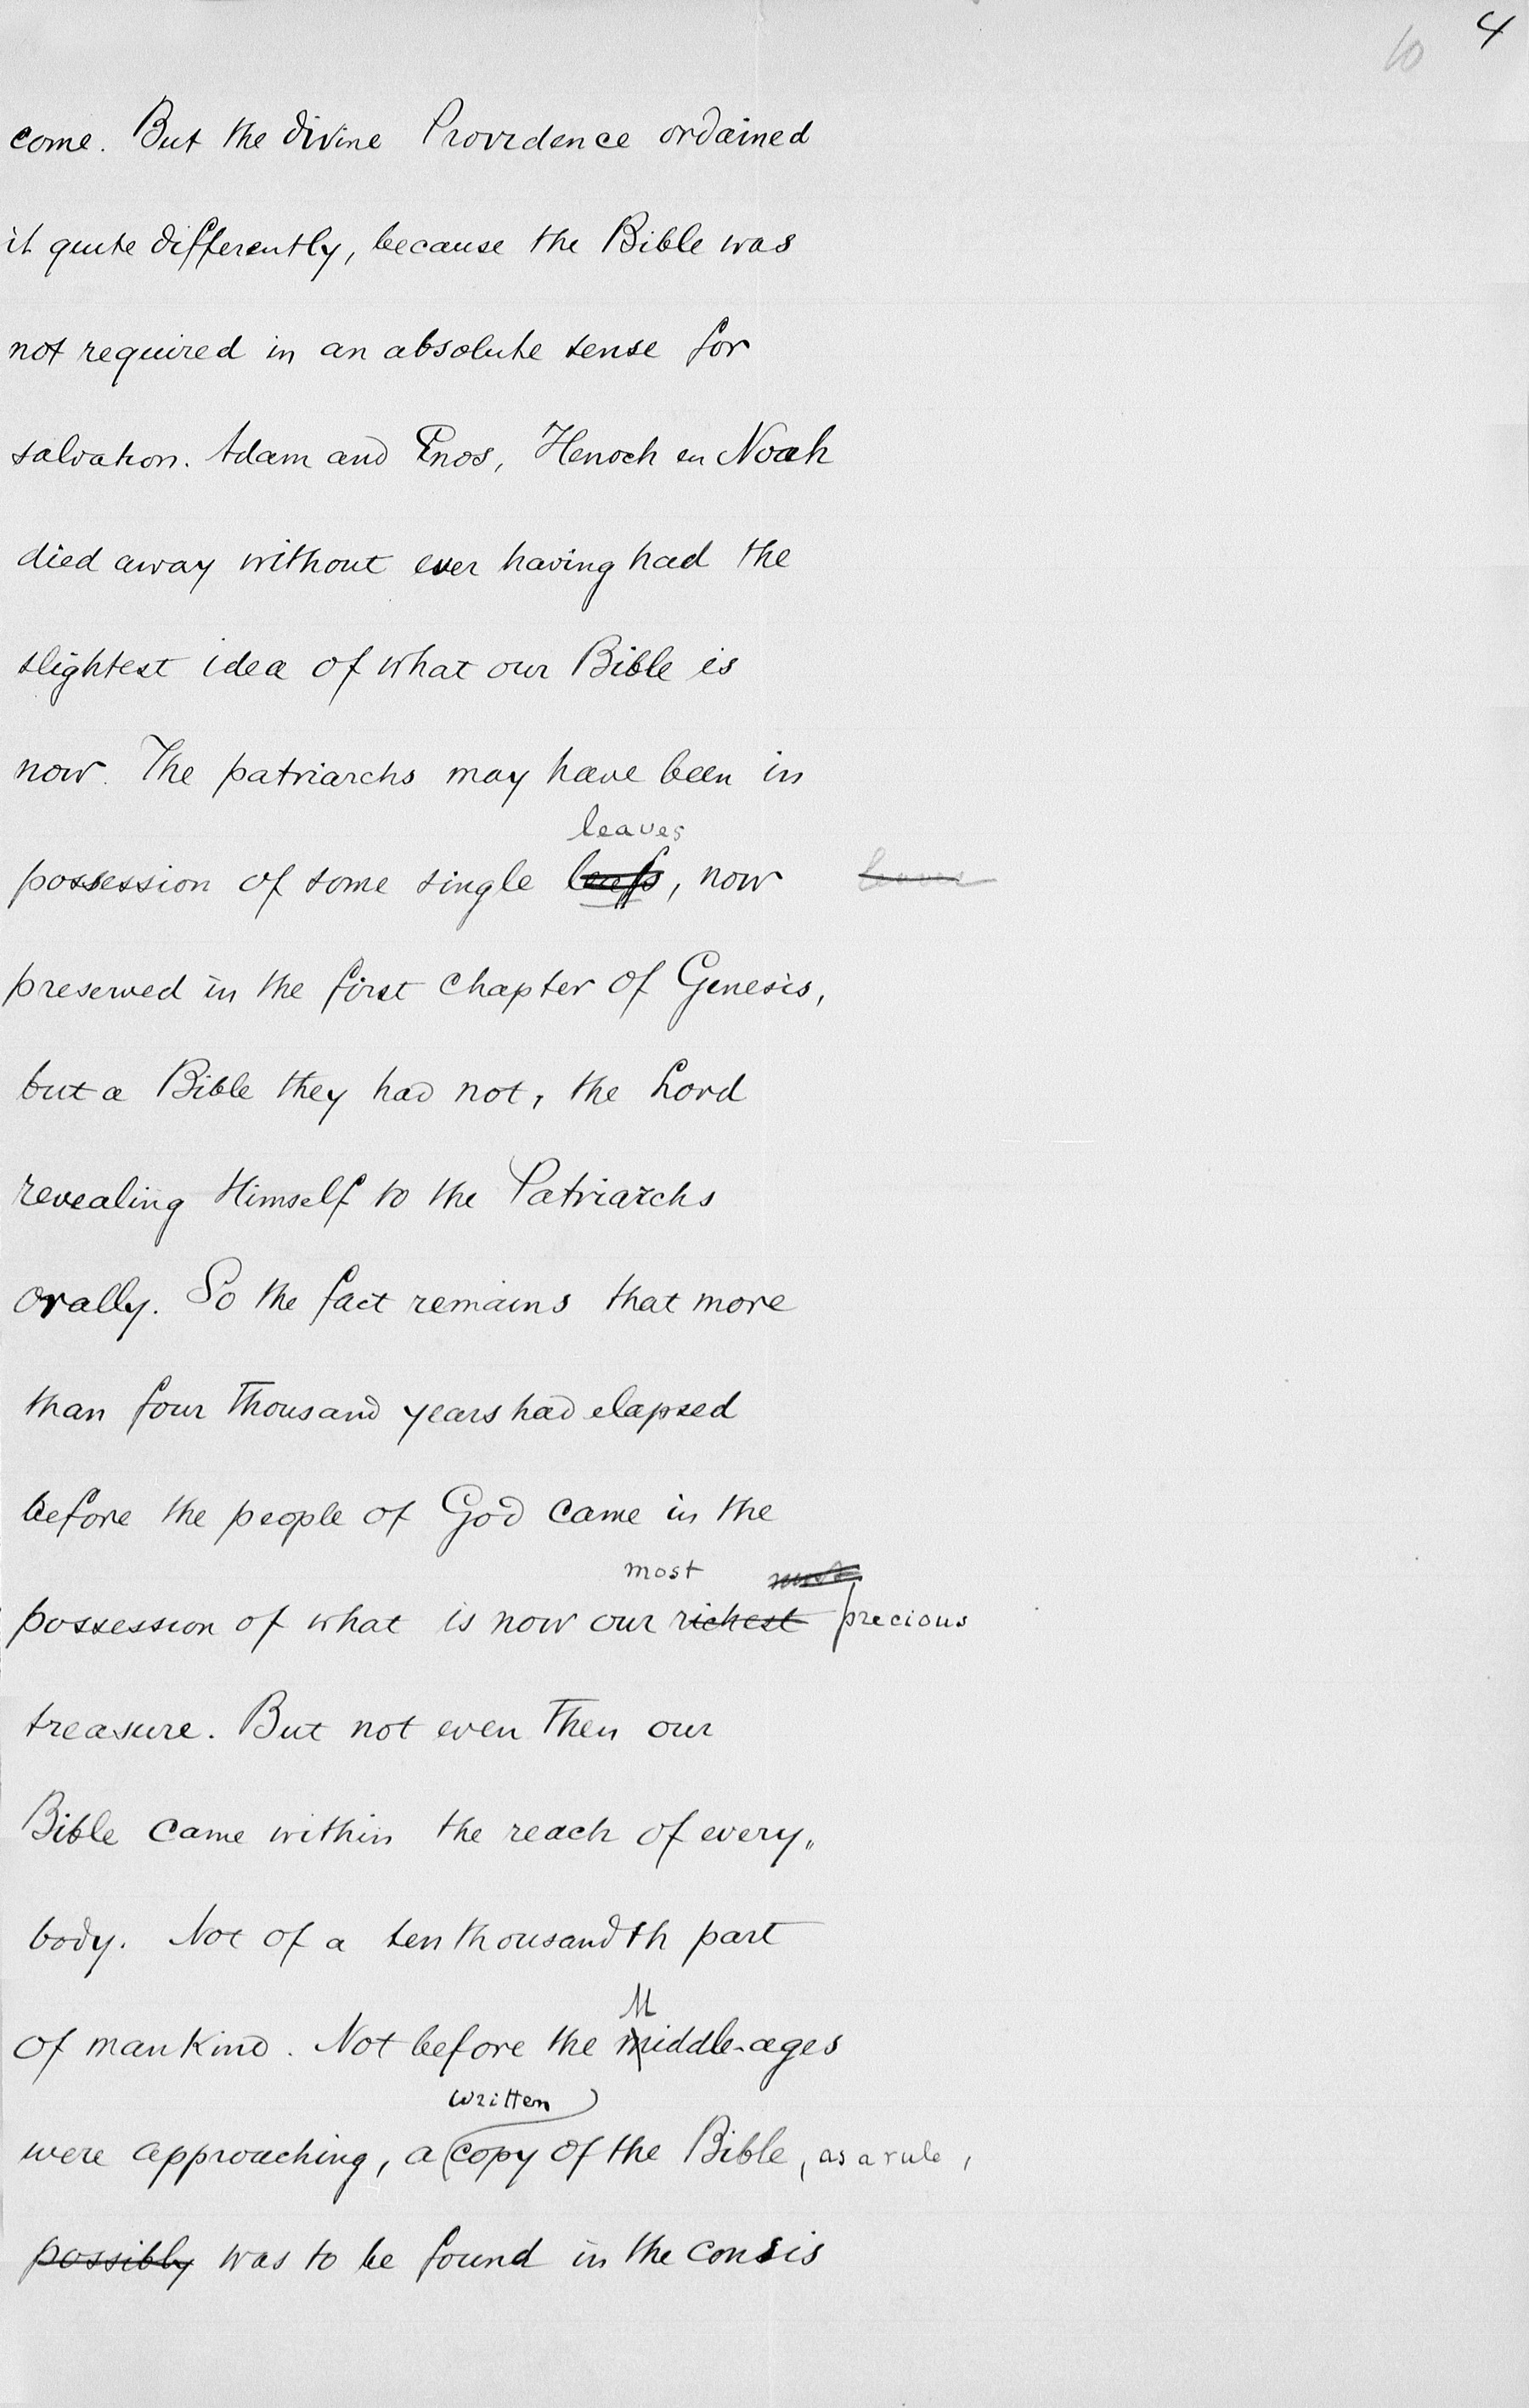 10 4
come. But the divine Providence ordained
it quite differently, because the Bible was
not required in an absolute sense for
salvation. Adam and Enos, Henoch en Noah
died away without ever having had the
slightest idea of what our Bible is
now. The patriarchs may have been in
leaves
possession of some single leafs, now leaves
preserved in the first chapter of Genesis,
but a Bible they had not, the Lord
revealing Himself to the Patriarchs
orally. So the fact remains that more
than four thousand years had elapsed
before the people of God came in the
most most
possession of what is now our richest precious
treasure. But not even then our
Bible came within the reach of every„
body. Not of a ten thousandth part
of mankind. Not before the Middle-ages
written
were approaching, a copy of the Bible, as a rule,
possibly was to be found in the consis